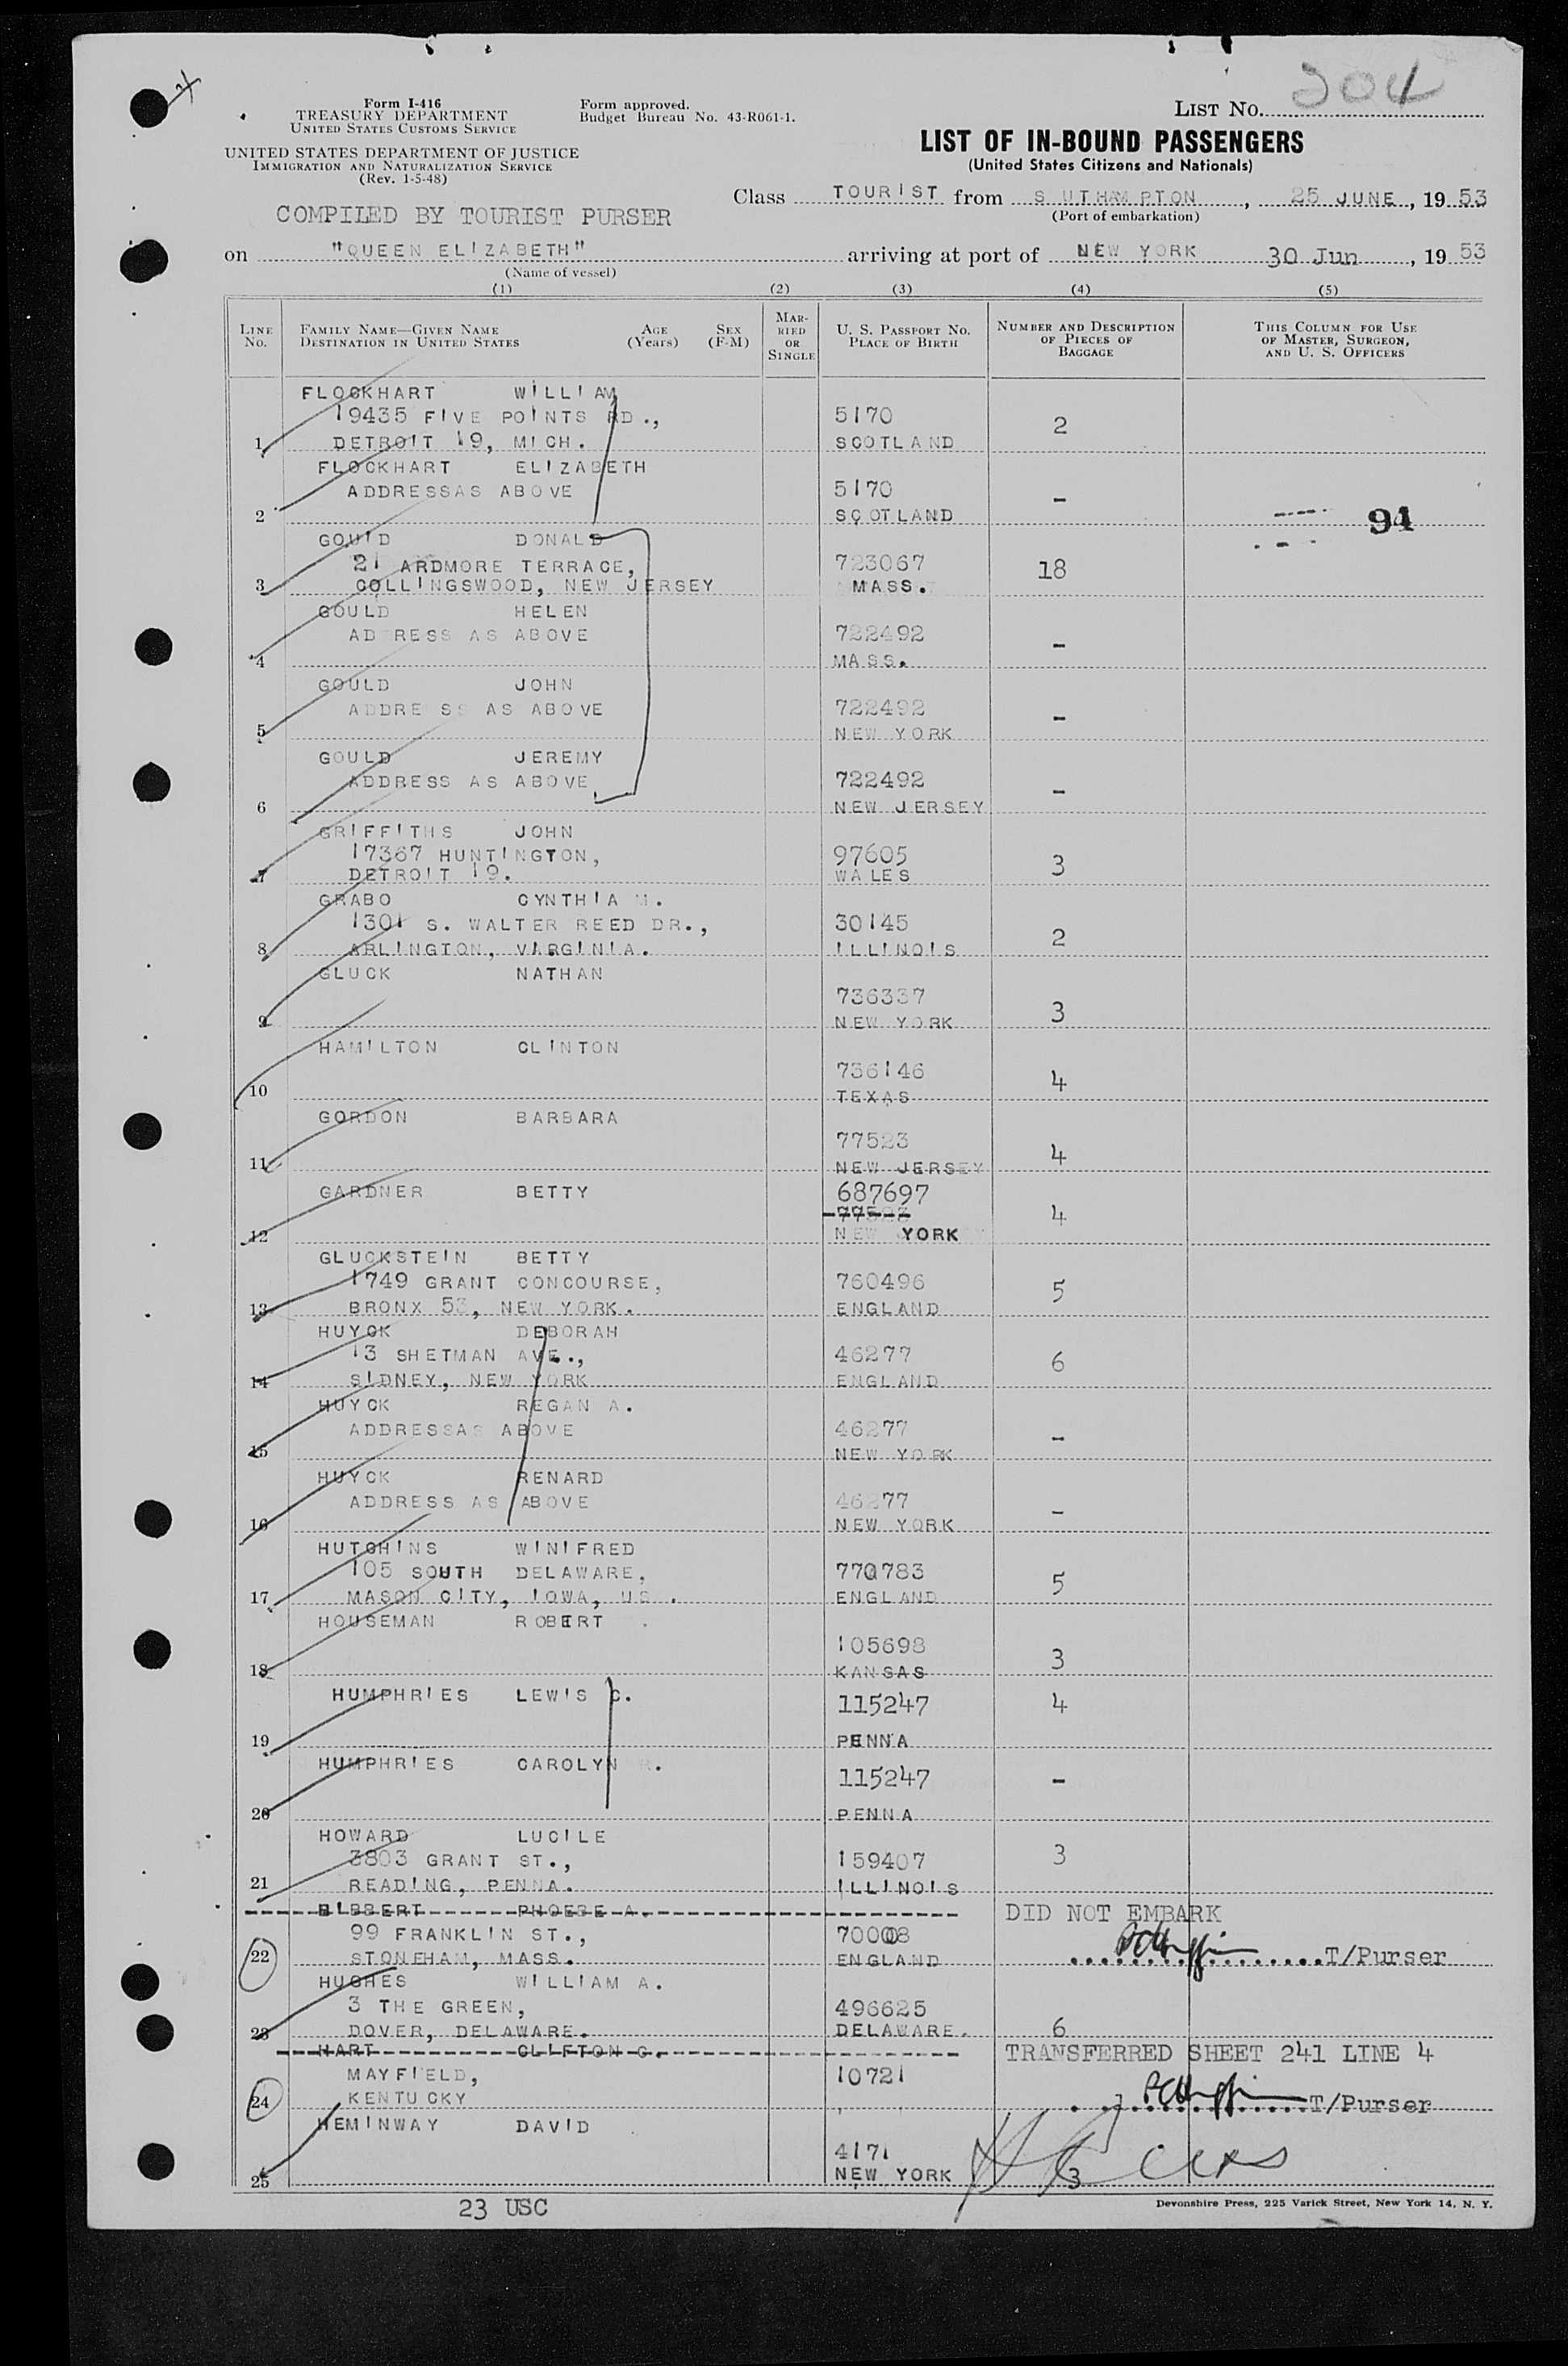 204
Form I-416
TREASURY DEPARTMENT
UNITED STATES CUSTOMS SERVICE
Form approved.
Budget Bureau No. 43-R061-1.
LIST NO.
UNITED STATES DEPARTMENT OF JUSTICE
IMMIGRATION AND NATURALIZATION SERVICE
(Rev. 1-5-48)
LIST OF IN-BOUND PASSENGERS
(United States Citizens and Nationals)
Class TOURIST from S UTHAMPTON, 25 JUNE, 19 53
(Port of embarkation)
COMPILED BY TOURIST PURSER
on "QUEEN ELIZABETH" arriving at port of NEW YORK 30 Jun, 19 53
(Name of vessel)
(1) (2) (3) (4) (5)
LINE NO. FAMILY NAME—GIVEN NAME DESTINATION IN UNITED STATES AGE (Years) SEX (F-M) MARRIED OR SINGLE U. S. PASSPORT NO. PLACE OF BIRTH NUMBER AND DESCRIPTION OF PIECES OF BAGGAGE THIS COLUMN FOR USE OF MASTER, SURGEON, AND U. S. OFFICERS
FLOCKHART WILLIAM
19435 FIVE POINTS RD., 5170 2
1 DETROIT 19, MICH. SCOTLAND
FLOCKHART ELIZABETH
ADDRESSAS ABOVE 5170 -
2 SCOTLAND 94
GOULD DONALD
21 ARDMORE TERRACE, 723067 18
3 COLLINGSWOOD, NEW JERSEY MASS.
GOULD HELEN
AD RESS AS ABOVE 722492 -
4 MASS.
GOULD JOHN
ADDRE SS AS ABOVE 722492 -
5 NEW YORK
GOULD JEREMY
ADDRESS AS ABOVE 722492 -
6 NEW JERSEY
GRIFFITHS JOHN
17367 HUNTINGTON, 97605 3
7 DETROIT 19. WALES
GRABO CYNTHIA M.
1301 S. WALTER REED DR., 30145 2
8 ARLINGTON, VIRGINIA. ILLINOIS
GLUCK NATHAN
736337 3
9 NEW YORK
HAMILTON CLINTON
736146 4
10 TEXAS
GORDON BARBARA
77523 4
11 NEW JERSEY
GARDNER BETTY 687697
77523 4
12 NEW YORK
GLUCKSTEIN BETTY
1749 GRANT CONCOURSE, 760496 5
13 BRONX 53, NEW YORK. ENGLAND
HUYCK DEBORAH
13 SHETMAN AVE., 46277 6
14 SIDNEY, NEW YORK ENGLAND
HUYCK REGAN A.
ADDRESSAS ABOVE 46277 -
15 NEW YORK
HUYCK RENARD
ADDRESS AS ABOVE 46277 -
16 NEW YORK
HUTCHINS WINIFRED
105 SOUTH DELAWARE, 770783 5
17 MASON CITY, IOWA, US . ENGLAND
HOUSEMAN ROBERT .
105698 3
18 KANSAS
HUMPHRIES LEWIS C. 115247 4
19 PENNA
HUMPHRIES CAROLYN R. 115247 -
20 PENNA
HOWARD LUCILE
3803 GRANT ST., 159407 3
21 READING, PENNA. ILLINOIS
HIBBERT PHOEBE A. DID NOT EMBARK
99 FRANKLIN ST., 70008
22 STONEHAM, MASS. ENGLAND T/Purser
HUGHES WILLIAM A.
3 THE GREEN, 496625
23 DOVER, DELAWARE. DELAWARE. 6
HART CLIFTON C. TRANSFERRED SHEET 241 LINE 4
MAYFIELD, 10721
24 KENTUCKY T/Purser
HEMINWAY DAVID
4171
25 NEW YORK 3
23 USC
Devonshire Press, 225 Varick Street, New York 14, N. Y.